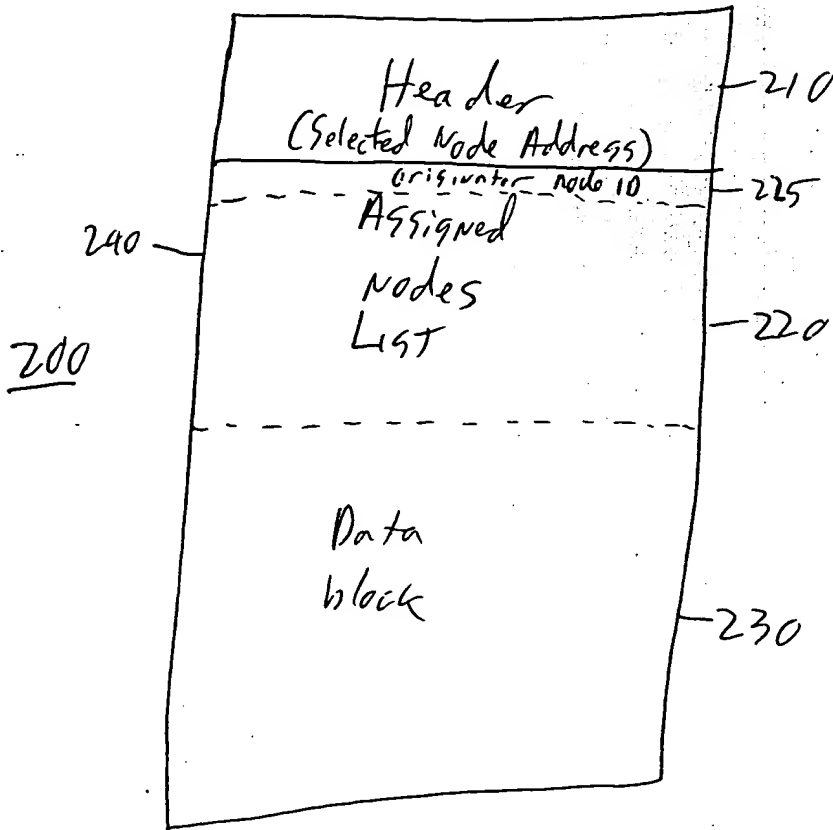 Header
210
(Selected Node Address)
originator node ID
225
Assigned
240
Nodes
List
220
200
Data
block
230